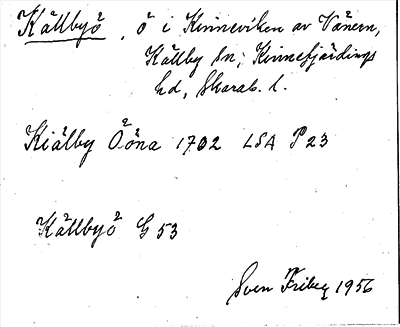 Källbyö, ö i Kinneviken av Vänern,
Källby sn, Kinnefjärdings
hd, Skarab. l.
Kiälby Ööna 1702 LSA P 23
Källbyö G 53
Sven Friberg 1956